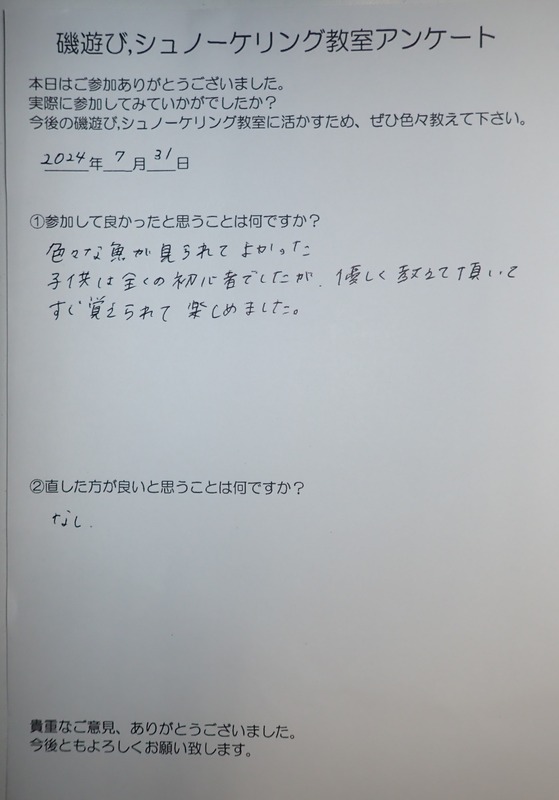 磯遊び,シュノーケリング教室アンケート
本日はご参加ありがとうございました。
実際に参加してみていかがでしたか?
今後の磯遊び,シュノーケリング教室に活かすため、ぜひ色々教えて下さい。
2024年 7月 31日
①参加して良かったと思うことは何ですか?
色々な魚が見られてよかった
子供は全くの初心者でしたが、優しく教えて頂いて
すぐ覚えられて楽しめました。
②直した方が良いと思うことは何ですか?
なし.
貴重なご意見、ありがとうございました。
今後ともよろしくお願い致します。